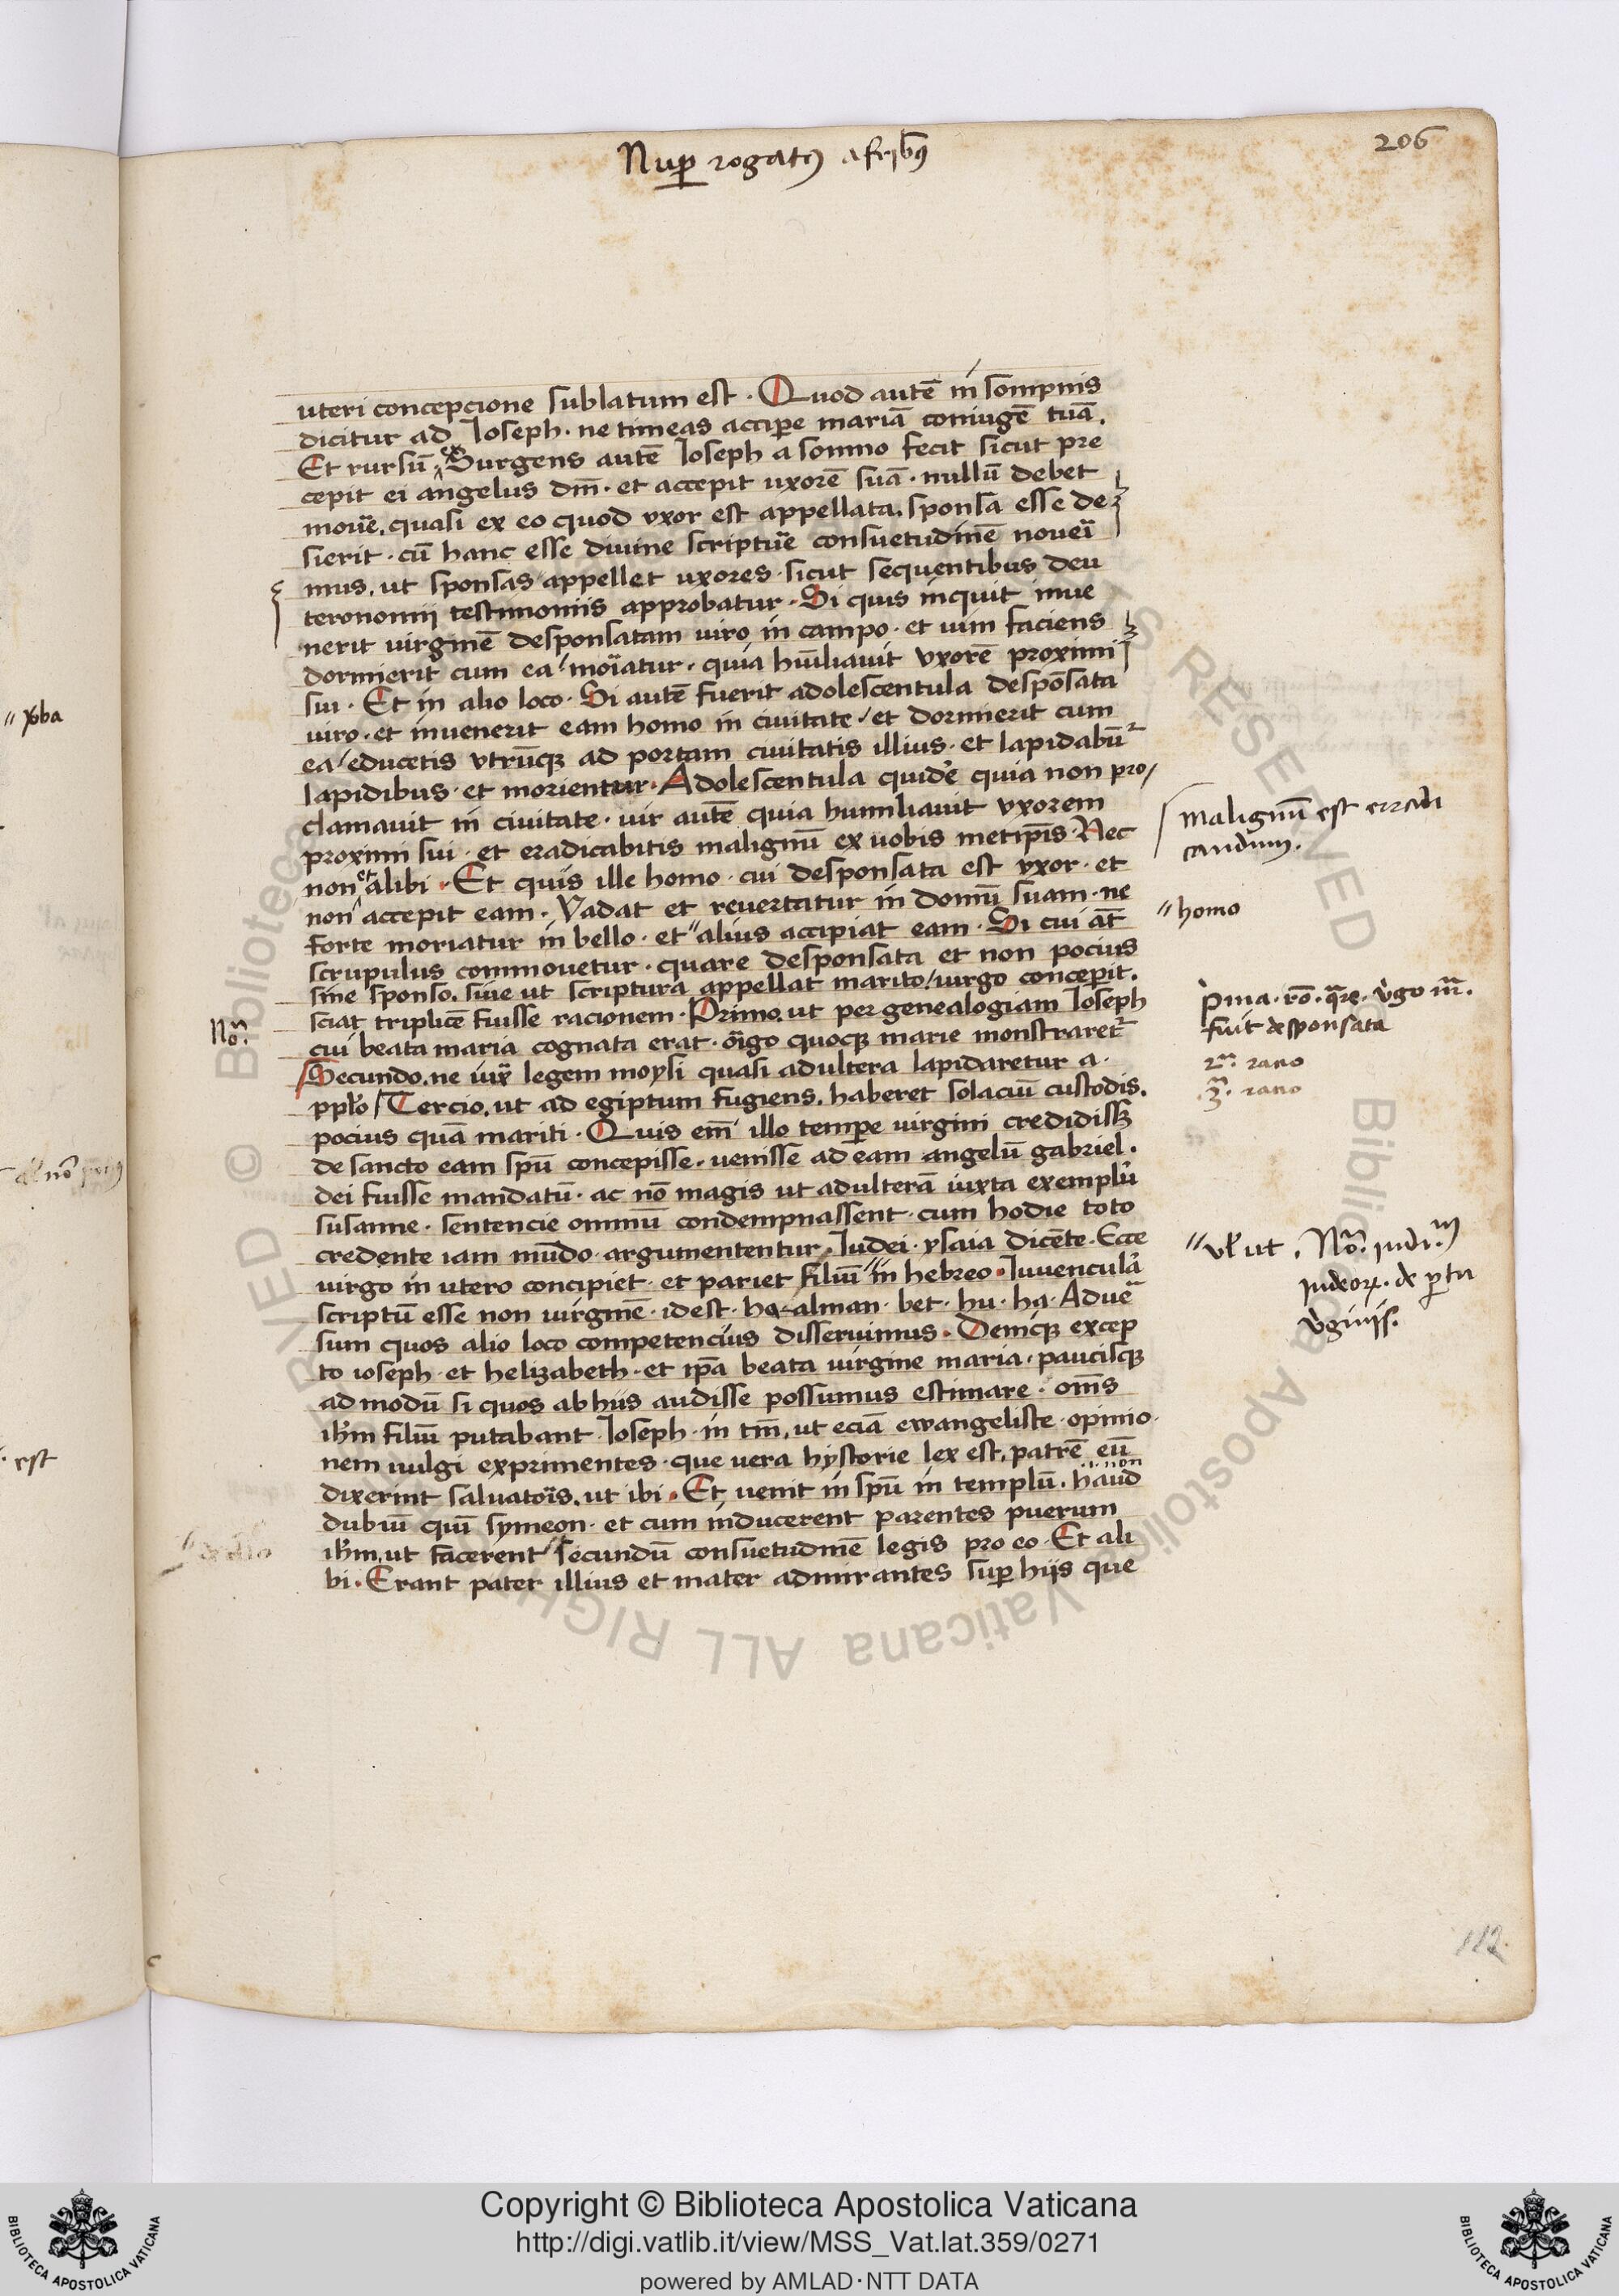 206
Nup̱ rogatꝰ a fr̄ibꝰ
uteri concepcione sublatum est · Quod autē in sompnis
dicitur ad Ioseph · ne timeas accip̱e mariā coniugē tuā.
Et rursū ex Surgens autē Ioseph a sonno fecit sicut pre
cepit ei angelus dn̄i · et accepit uxorē suā · nullū debet
mouēe, quasi ex eo quod vxor est appellata, sponsa esse de
sierit · cū hanc esse diuine scriptūe consuetudinē nouei
mus, ut sponsas appellet uxores · sicut sequentibus deu
teronomij testimoniis approbatur · Si quis inquit inue
nerit virginē desponsatam viro in campo · et uim faciens
dormierit cum ea / moriatur · quia hūiliauit vxorē proximi
sui · Et in alio loco · Si autē fuerit adolescentula despōsata
viro · et inuenerit eam homo in ciuitate / et dormierit cum
ea / educetis vtrūqꝫ ad portam ciuitatis illius · et lapidabūr
lapidibus · et morientur · Adolescentula quidē quia non pro/
clamauit in ciuitate · uir autē quia humiliauit vxorem
proximi sui · et eradicabitis malignū ex uobis metip̄is · Nec
non et alibi · Et quis ille homo · cui desponsata est vxor · et
non accepit eam · Vadat et reuertatur in domū suam · ne
forte moriatur in bello · et " alius accipiat eam · Si cui āt
scrupulus commouetur · quare desponsata et non pocius
sine sponso, siue ut scriptura appellat marito / uirgo conceperit.
sciat triplicē fuisse racionem · Primo, ut per genealogiam Ioseph
cui beata maria cognata erat · origo quoqꝫ marie monstraretr
Secundo, ne iux̄ legem moysi quasi adultera lapidaretur a ·
pplo / Tercio, ut ad egiptum fugiens, haberet solaciū custodis,
pocius quā mariti · Quis em̄ illo tempe virgini credidissꝫ
de sancto eam spū concepisse · uenisse ad eam angelū gabriel ·
dei fuisse mandatū · ac nō magis ut adulterā iuxta exemplū
susanne · sentencie omniū condempnassent · cum hodie toto
credente iam mūdo · argumententur · Iudei · ysaia dicēte · Ecce
virgo in utero concipiet · et pariet filiū " in hebreo · Iuuenculā
scriptū esse non uirginē · idest · ha alman · bet · hu · ha · Aduer
sum quos alio loco competencius disseruimus · Deniqꝫ excep
to ioseph · et helizabeth · et ip̄a beata uirgine maria · paucisqꝫ
admodū si quos ab hiis audisse possumus estimare · om̄s
ih̄m filiū putabant Ioseph · in tm̄, ut eciā ewangeliste · opinio
nem uulgi exprimentes · que uera hystorie lex est, patrē eū
dixerint saluatoris, ut ibi · Et uenit in spū in templū · haud non
dubiū quī symeon · et cum inducerent parentes puerum
ih̄m, ut facerent " secundū consuetudinē legis pro eo · Et ali
bi · Erant pater illius et mater admirantes sup̱ hijs que
malignū est eradi
candum.
" homo
Pma · rō · q̄re · v̄go m̄ ·
fuit desponsata
2ᵃ · racio
3ᵃ · racio
No.
" vl ut · No. iudi.
iudeoꝝ · de p̱tu
v̄ginis.
· est
112
Copyright © Biblioteca Apostolica Vaticana
http://digi.vatlib.it/view/MSS_Vat.lat.359/0271
powered by AMLAD·NTT DATA
BIBLIOTECA APOSTOLICA VATICANA
BIBLIOTECA APOSTOLICA VATICANA